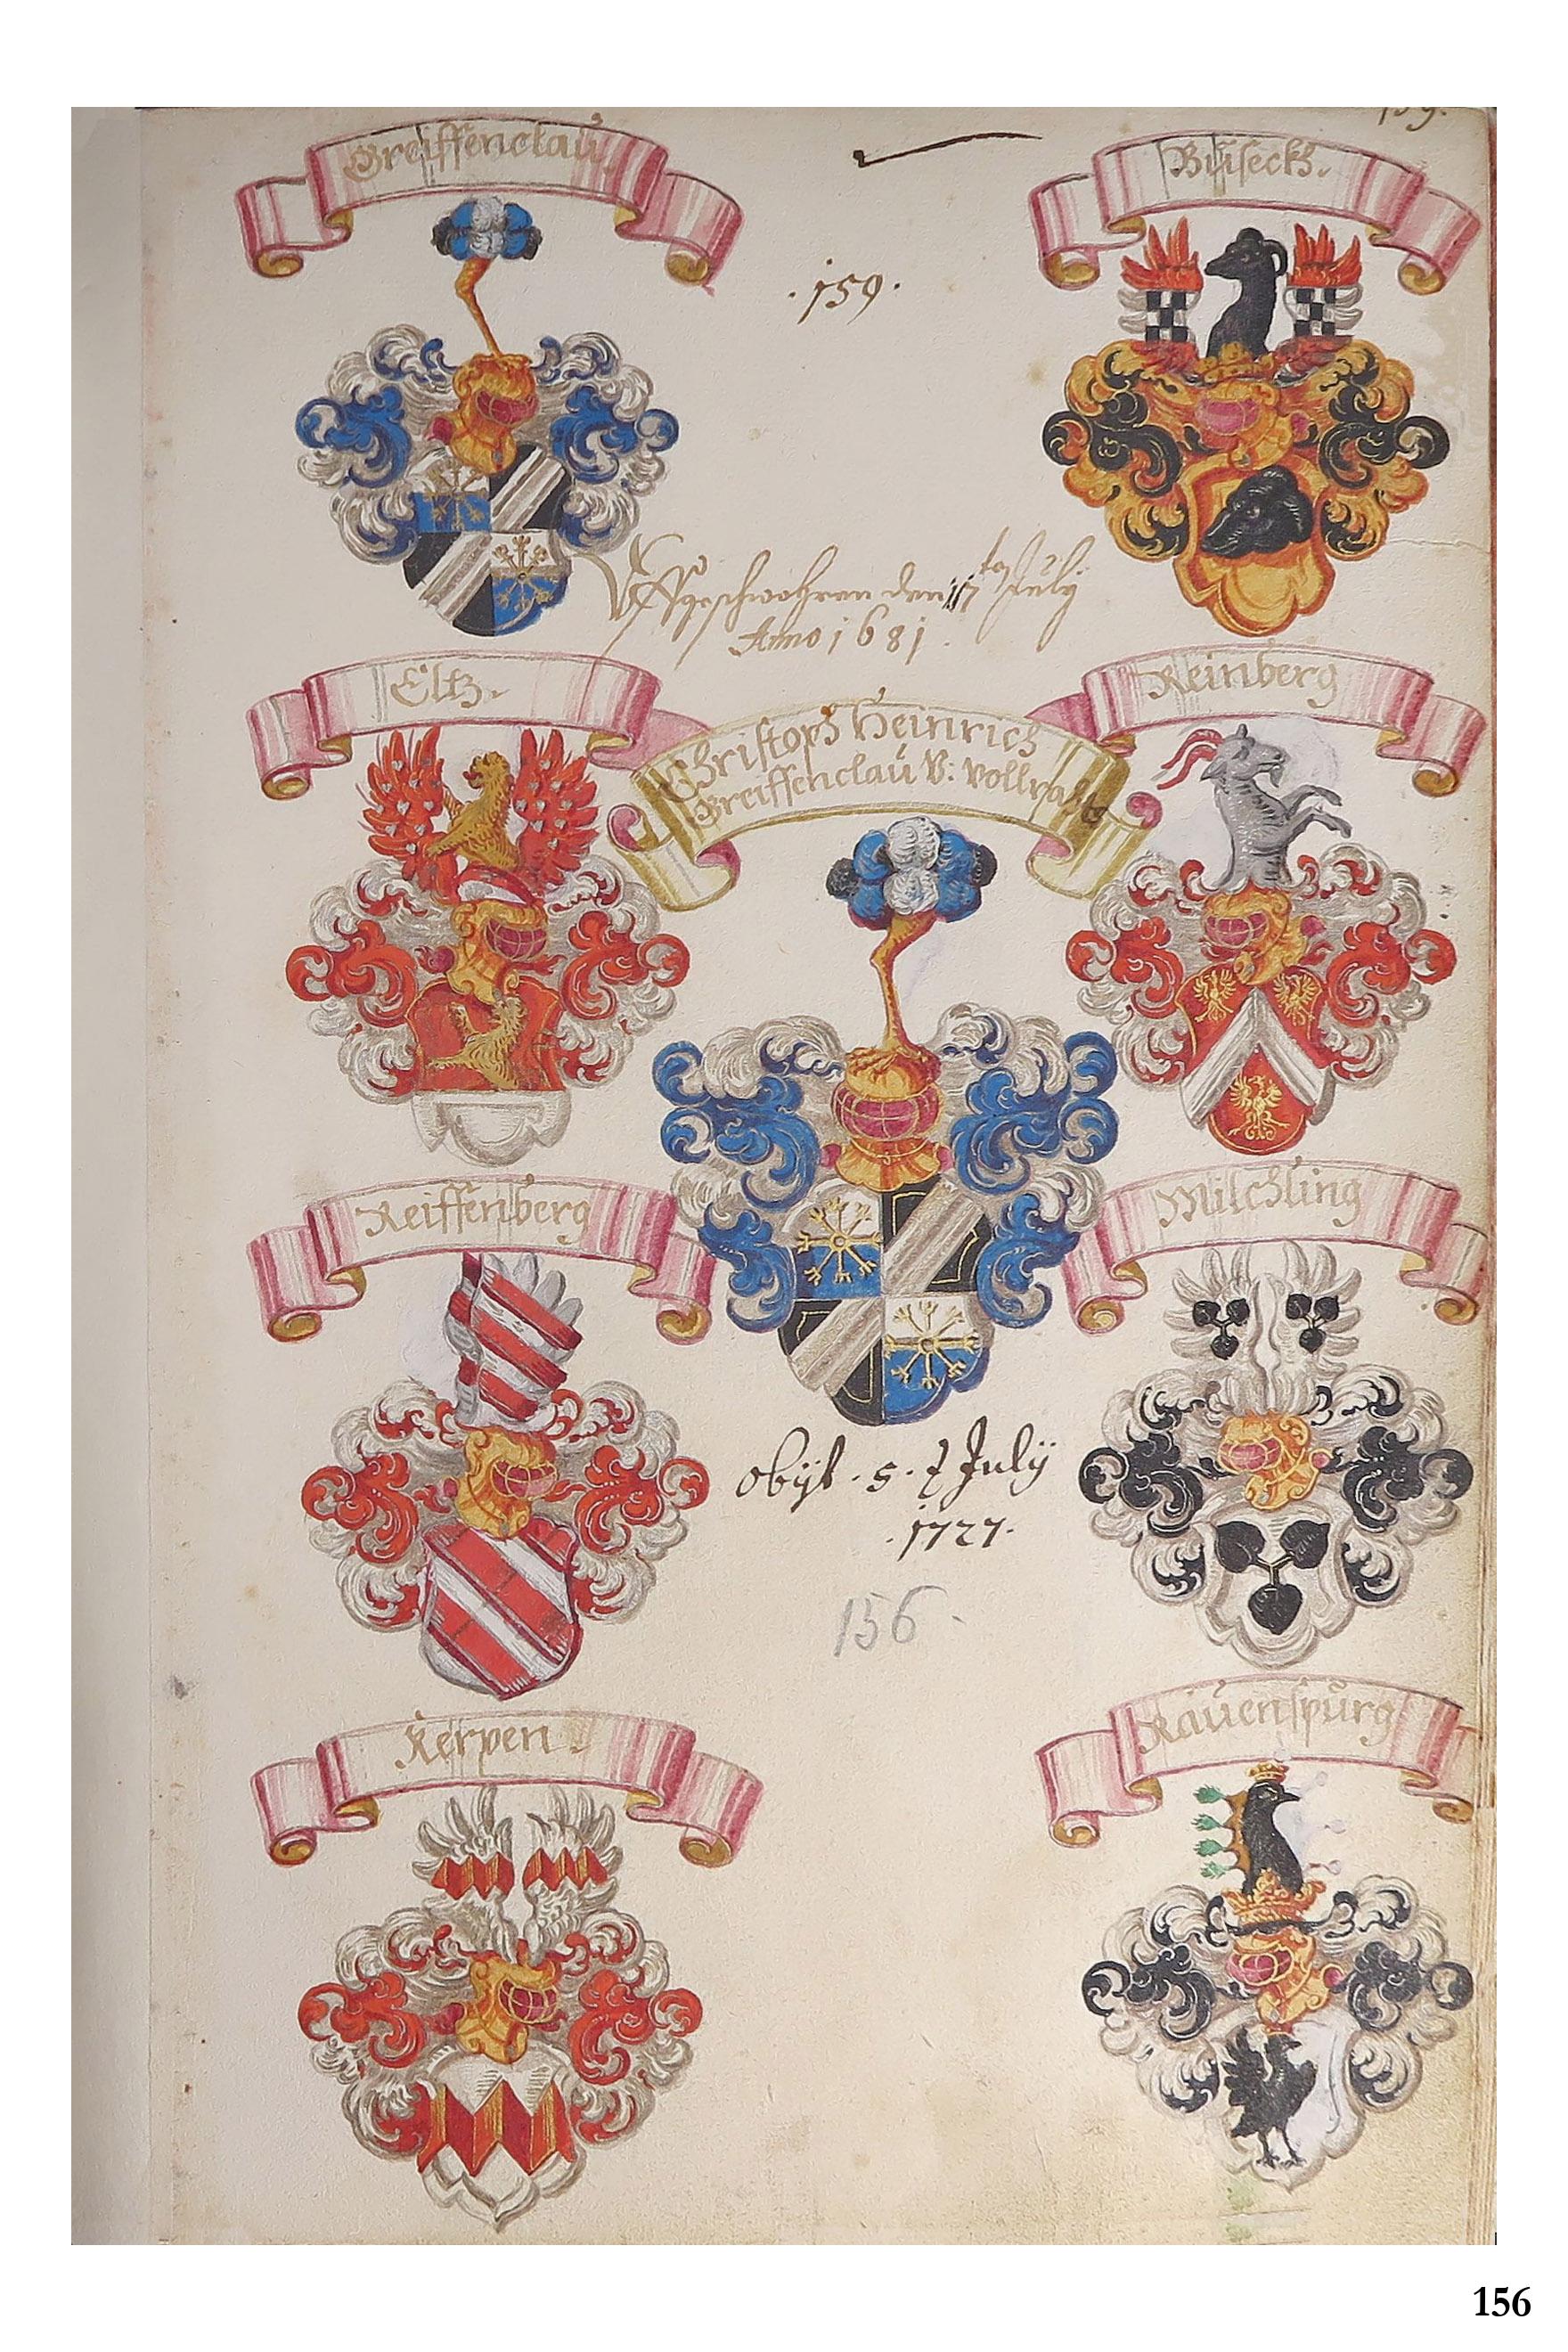 159.
Greiffenclau.
Buseckh.
.159.
Uffgeschwohren den 17 ten July
Anno 1681.
Eltz.
Reinberg
Christoph Heinrich
Greiffenclau V: vollrats
Reiffenberg
Milchling
obijt . 5. t July
.1727.
156.
Kerpen.
Rauenspurg
156